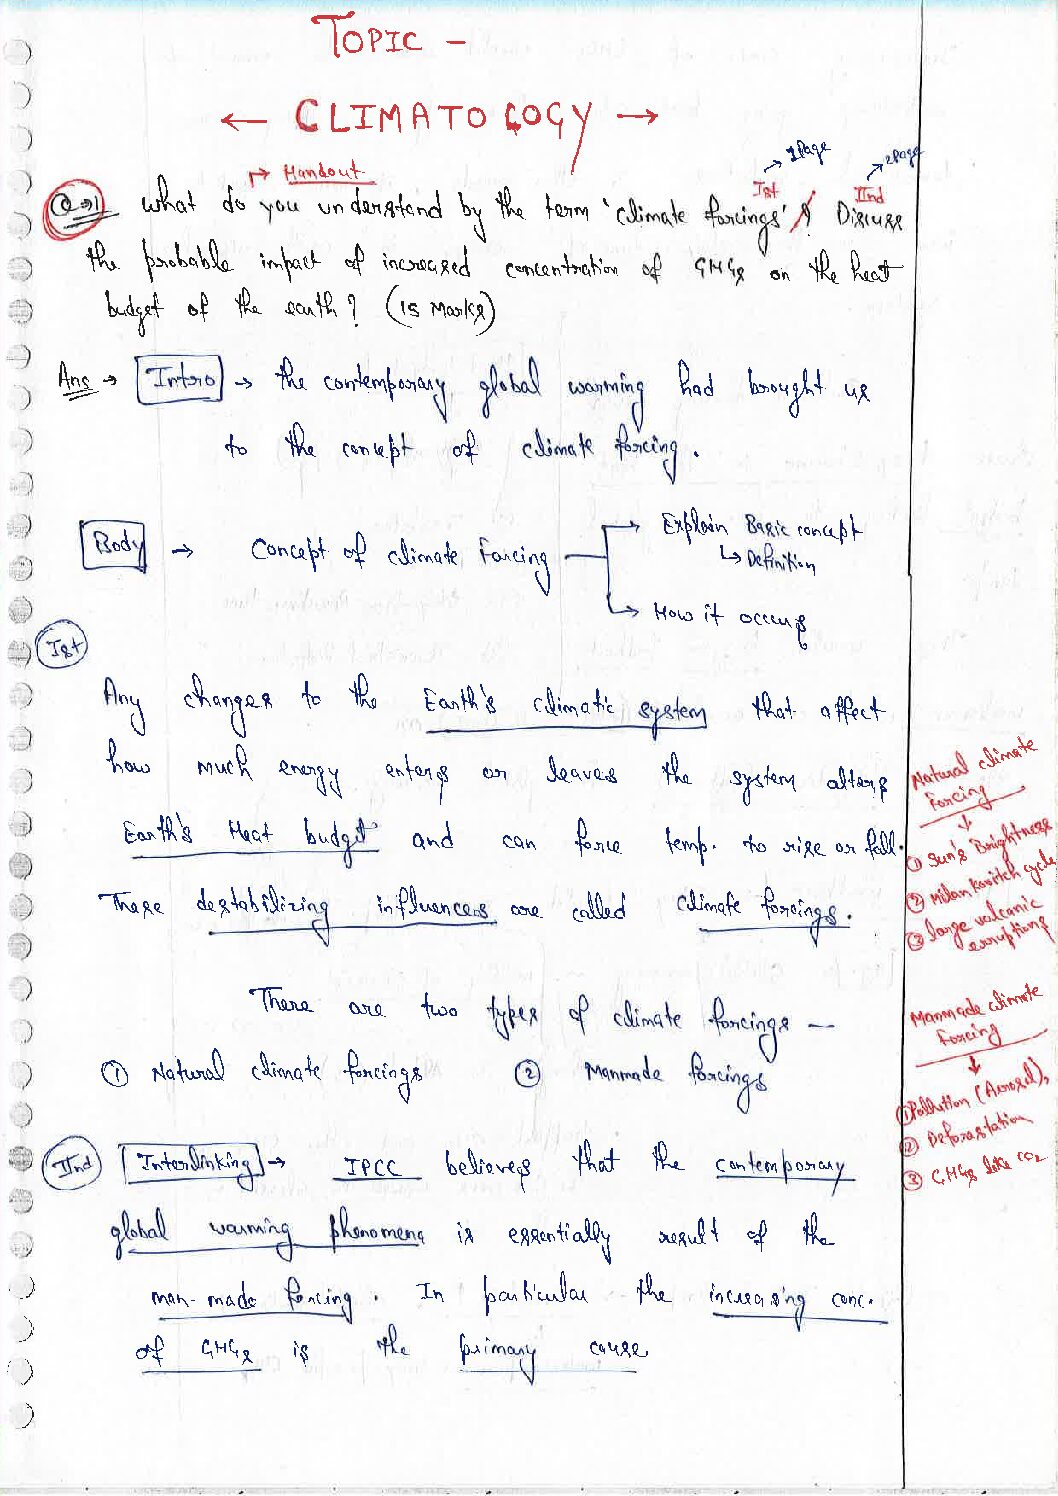 TOPIC -
← CLIMATOLOGY →
→ 1Page
→ 2Page
↱ Handout
Ist
IInd
Q→1 What do you understand by the term 'climate forcings'? Discuss
the probable impact of increased concentration of GHGs on the heat
budget of the earth? (15 Marks)
Ans → Intro → the contemporary global warming had brought us
to the concept of climate forcing.
Body → Concept of climate Forcing
→ Explain Basic concept
↳ Definition
→ How it occurs
Ist
Any changes to the Earth's climatic system that affect
how much energy enters or leaves the system alters
Earth's Heat budget and can force temp. to rise or fall.
These destabilizing influences are called climate forcings.
There are two types of climate forcings —
① Natural climate forcings ② Manmade forcings
IInd Interlinking → IPCC believes that the contemporary
global warming phenomena is essentially result of the
man-made forcing. In particular the increasing conc.
of GHGs is the primary cause
Natural climate
Forcing
↓
① Sun's Brightness
② milankovitch cycle
③ large volcanic
erruptions
Manmade climate
Forcing
↓
① Pollution (Aerosol),
② Deforestation
③ GHGs like CO2